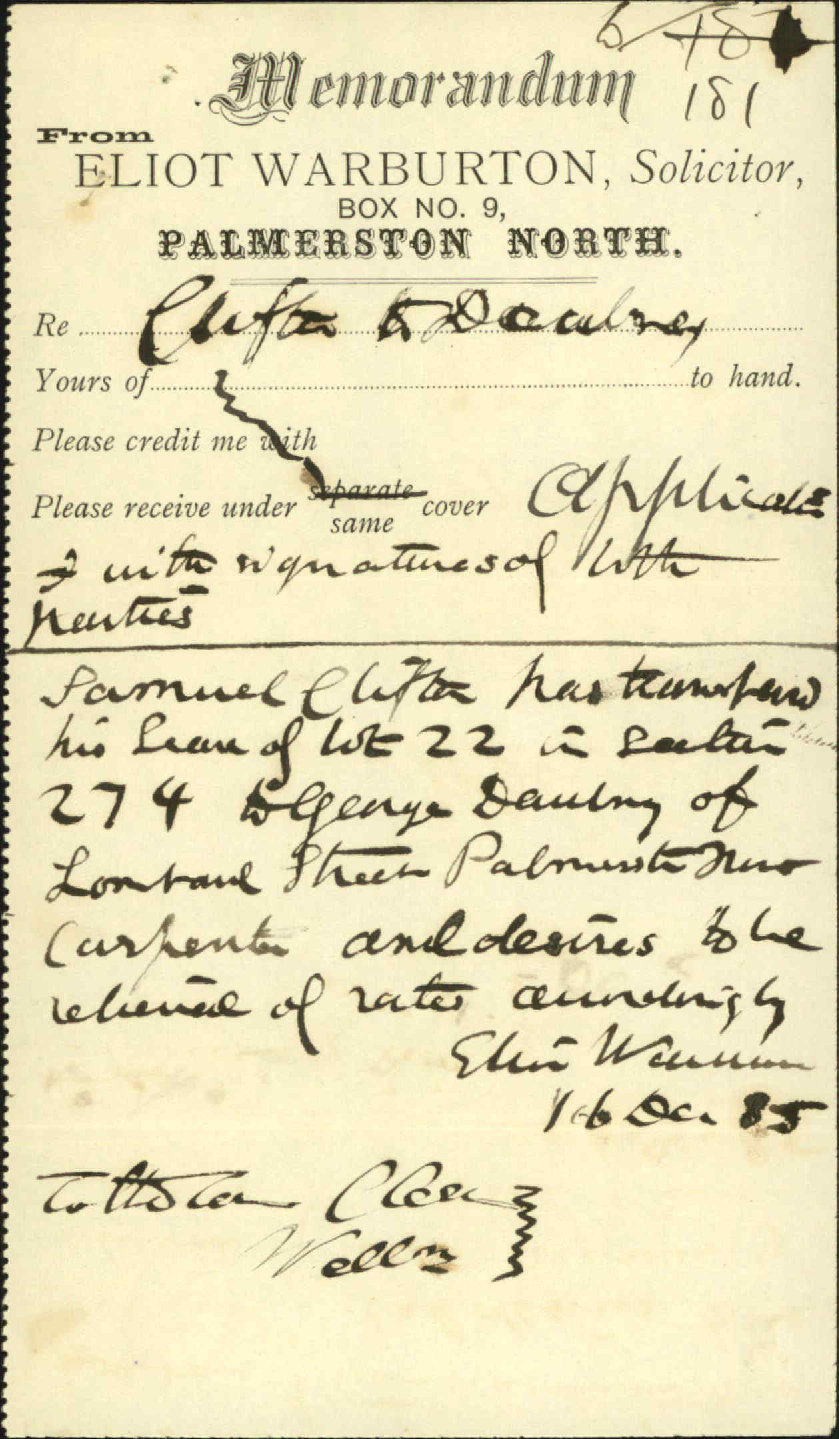 181
Memorandum
From
ELIOT WARBURTON, Solicitor,
BOX NO. 9,
PALMERSTON NORTH.
Re Clifton to Daubney
Yours of to hand.
Please credit me with
Please receive under separate same cover Application
with signatures of both
parties
Samuel Clifton has transferred
his lease of lot 22 in section
274 to George Daubney of
Lombard Street Palmerston
Carpenter and desires to be
relieved of rates accordingly
Eliot Warburton
16 Dec 85
To the Town Clerk
Wellington